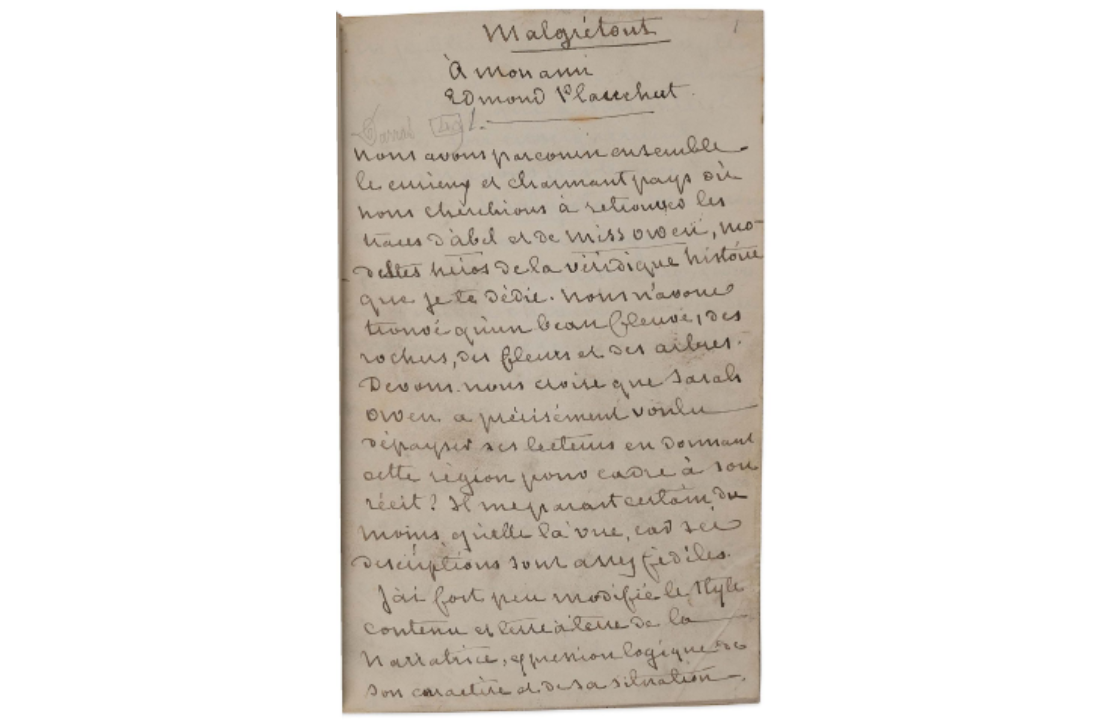 Malgrétout
1
À mon ami
Edmond Plauchut.
I.
nous avons parcouru ensemble
le curieux et charmant pays où
nous cherchions à retrouver les
traces d'abel et de miss owen, mo-
destes héros de la véridique histoire
que je te dédie. nous n'avons
trouvé qu'un beau fleuve, des
rochers, des fleurs et des arbres.
Devons-nous croire que Sarah
owen a précisément voulu
dépayser ses lecteurs en donnant
cette région pour cadre à son
récit? Il me parait certain du
moins, qu'elle l'a vue, car ses
descriptions sont assez fidèles.
J'ai fort peu modifié le style
contenu et terre à terre de la
narratrice, expression logique de
son caractère et de sa situation.